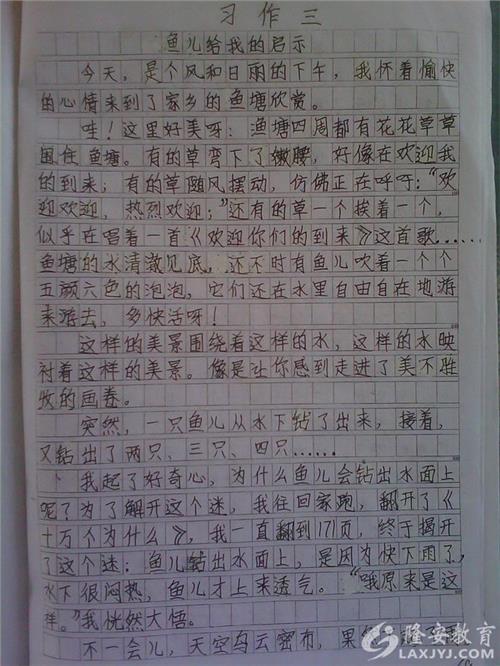 习作三
鱼儿给我的启示
今天，是个风和日丽的下午，我怀着愉快
的心情来到了家乡的鱼塘欣赏。
哇！这里好美呀：渔塘四周都有花花草草
围住鱼塘。有的草弯下了嫩腰，好像在欢迎我
的到来；有的草随风摆动，仿佛正在呼吁：“欢
迎欢迎，热烈欢迎；”还有的草一个挨着一个，
似乎在唱着一首《欢迎你们的到来》这首歌……
鱼塘的水清澈见底，还不时有鱼儿吹着一个个
五颜六色的泡泡，它们还在水里自由自在地游
来游去，多快活呀！
这样的美景围绕着这样的水，这样的水映
衬着这样的美景。像是让你感到走进了美不胜
收的画卷。
突然，一只鱼儿从水下钻了出来，接着，
又钻出了两只、三只、四只……
我起了好奇心，为什么鱼儿会钻出水面上
呢？为了解开这个迷，我往回家跑，翻开了《
十万个为什么》，我一直翻到171页，终于揭开
了这个迷；鱼儿钻出水面上，是因为快下雨了，
水下很闷热，鱼儿才上来透气。“哦原来是这
样。”我恍然大悟。
不一会儿，天空乌云密布，果
隆安教育
LAXJYJ.COM